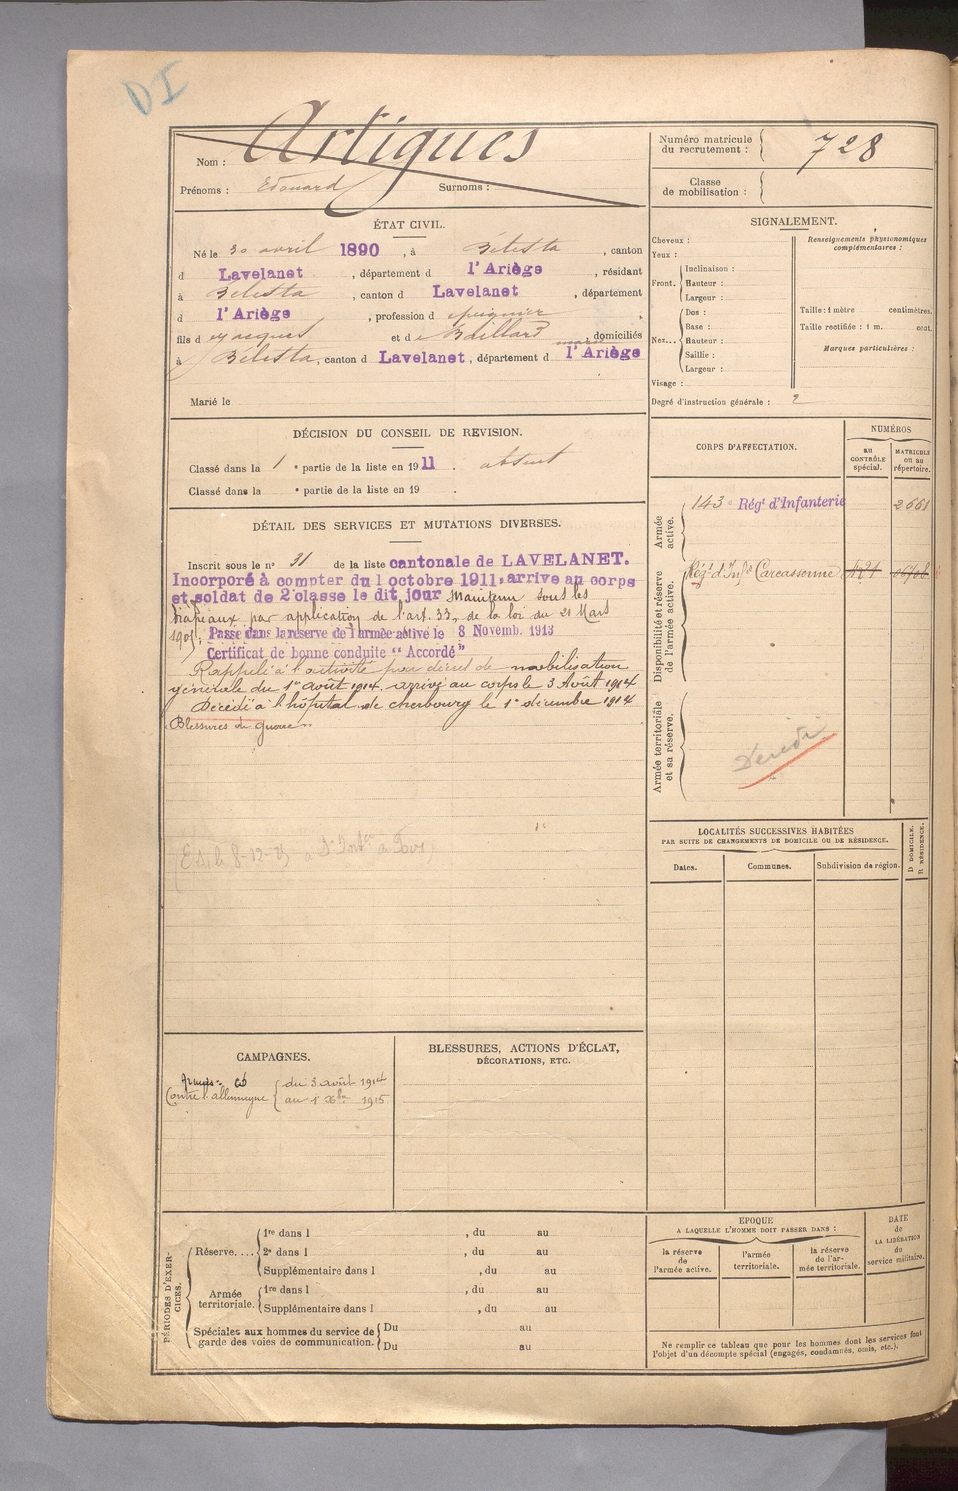 DI
Nom : Artigues
Prénoms : Edouard Surnoms :
Numéro matricule du recrutement : 728
Classe de mobilisation :
ÉTAT CIVIL.
Né le 30 avril 1890, à Bélesta, canton
d Lavelanet, département d l'Ariège, résidant
à Bélesta, canton d Lavelanet, département
d l'Ariège, profession d peignier
fils d Jacques et de Baillard, domiciliés
à Bélesta, canton d Lavelanet, département d l'Ariège
Marié le
SIGNALEMENT.
Cheveux :
Yeux :
Front. Inclinaison :
Hauteur :
Largeur :
Nez... Dos :
Base :
Hauteur :
Saillie :
Largeur :
Visage :
Renseignements physionomiques complémentaires :
Taille : 1 mètre centimètres.
Taille rectifiée : 1 m. cent.
Marques particulières :
Degré d'instruction générale : 2
DÉCISION DU CONSEIL DE REVISION.
Classé dans la 1 e partie de la liste en 1911. absent
Classé dans la e partie de la liste en 19 .
DÉTAIL DES SERVICES ET MUTATIONS DIVERSES.
Inscrit sous le n° 31 de la liste cantonale de LAVELANET.
Incorporé à compter du 1 octobre 1911, arrive au corps
et soldat de 2e classe le dit jour Maintenu sous les
drapeaux par application de l'art. 33, de la loi du 21 Mars
1905. Passé dans la réserve de l'armée active le 8 Novemb. 1913
Certificat de bonne conduite "Accordé"
Rappelé à l'activité par décret de mobilisation
générale du 1er août 1914, arrivé au corps le 3 Août 1914
Décédé à l'hôpital de cherbourg le 1er décembre 1914
Blessures de guerre
CORPS D'AFFECTATION.
NUMÉROS
au CONTRÔLE spécial.
MATRICULE ou au répertoire.
Armée active.
143e Régt d'Infanterie 2661
Disponibilité et réserve de l'armée active.
Régt d'Infie Carcassonne
Armée territoriale et sa réserve.
Décédé
LOCALITÉS SUCCESSIVES HABITÉES
PAR SUITE DE CHANGEMENTS DE DOMICILE OU DE RÉSIDENCE.
Dates. Communes. Subdivision de région.
D DOMICILE.
R RÉSIDENCE.
CAMPAGNES.
Contre l'allemagne du 3 août 1914
au 1er Xbre 1915
BLESSURES, ACTIONS D'ÉCLAT,
DÉCORATIONS, ETC.
PÉRIODES D'EXERCICES.
Réserve.... 1re dans l , du au
2e dans l , du au
Supplémentaire dans l , du au
Armée territoriale. 1re dans l , du au
Supplémentaire dans l , du au
Spéciales aux hommes du service de garde des voies de communication. Du au
Du au
EPOQUE
A LAQUELLE L'HOMME DOIT PASSER DANS :
la réserve de l'armée active.
l'armée territoriale.
la réserve de l'armée territoriale.
DATE de LA LIBÉRATION du service militaire.
Ne remplir ce tableau que pour les hommes dont les services font
l'objet d'un décompte spécial (engagés, condamnés, omis, etc.).